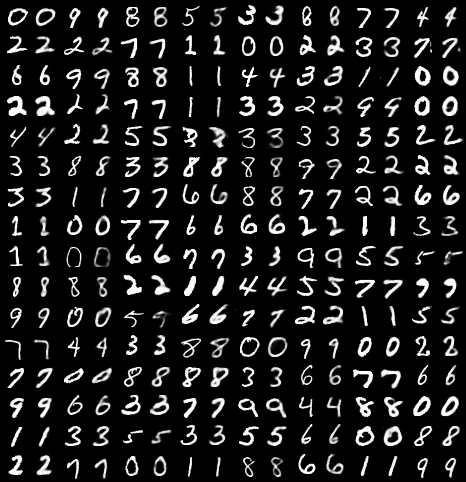 0 0 9 9 8 8 5 5 3 3 8 8 7 7 4 4
2 2 2 2 7 7 1 1 0 0 2 2 3 3 7 7
6 6 9 9 8 8 1 1 4 4 3 3 1 1 0 0
2 2 2 2 7 7 1 1 3 3 2 2 9 9 0 0
4 4 2 2 5 5 3 3 3 3 5 5 2 2
3 3 8 8 3 3 8 8 8 8 9 9 2 2 2 2
3 3 1 1 7 7 6 6 8 8 7 7 2 2 6 6
1 1 0 0 7 7 6 6 6 6 2 2 1 1 3 3
1 1 0 0 6 6 7 7 3 3 9 9 5 5 5 5
8 8 8 8 2 2 1 1 4 4 5 5 7 7 9 9
9 9 0 0 5 9 6 6 7 7 2 2 1 1 5 5
7 7 4 4 3 3 8 8 0 0 9 9 0 0 2 2
7 7 0 0 8 8 8 8 3 3 6 6 7 7 6 6
9 9 6 6 3 3 7 7 9 9 4 4 8 8 0 0
1 1 3 3 5 5 3 3 5 5 6 6 0 0 8 8
2 2 7 7 0 0 1 1 8 8 6 6 1 1 9 9